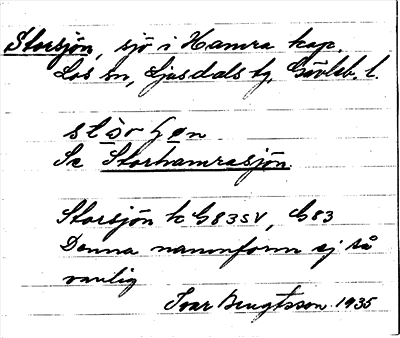 Storsjön, sjö i Hamra kap.
Los sn, Ljusdals tg, Gävleb. l.
Se Storhamrasjön
Storsjön k G83SV, G83
Denna namnform ej så
vanlig
Ivar Bengtsson 1935